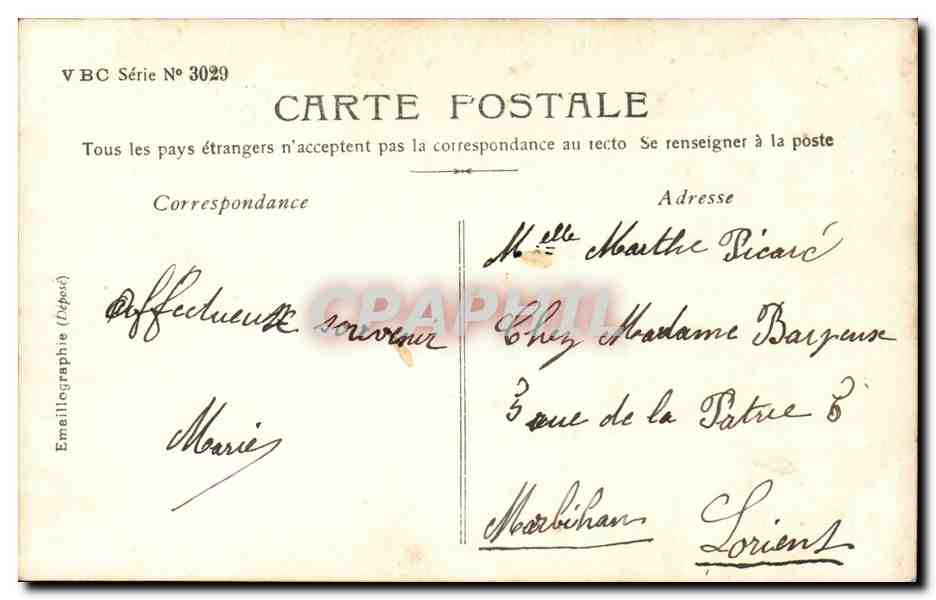 VBC Série Nº 3029
CARTE POSTALE
Tous les pays étrangers n'acceptent pas la correspondance au recto Se renseigner à la poste
Correspondance
Affectueux souvenir
Marie
Emaillographie (Déposé)
Adresse
Melle Marthe Picard
Chez Madame
rue de la Patrie
Morbihan
Lorient
CPAPHIL